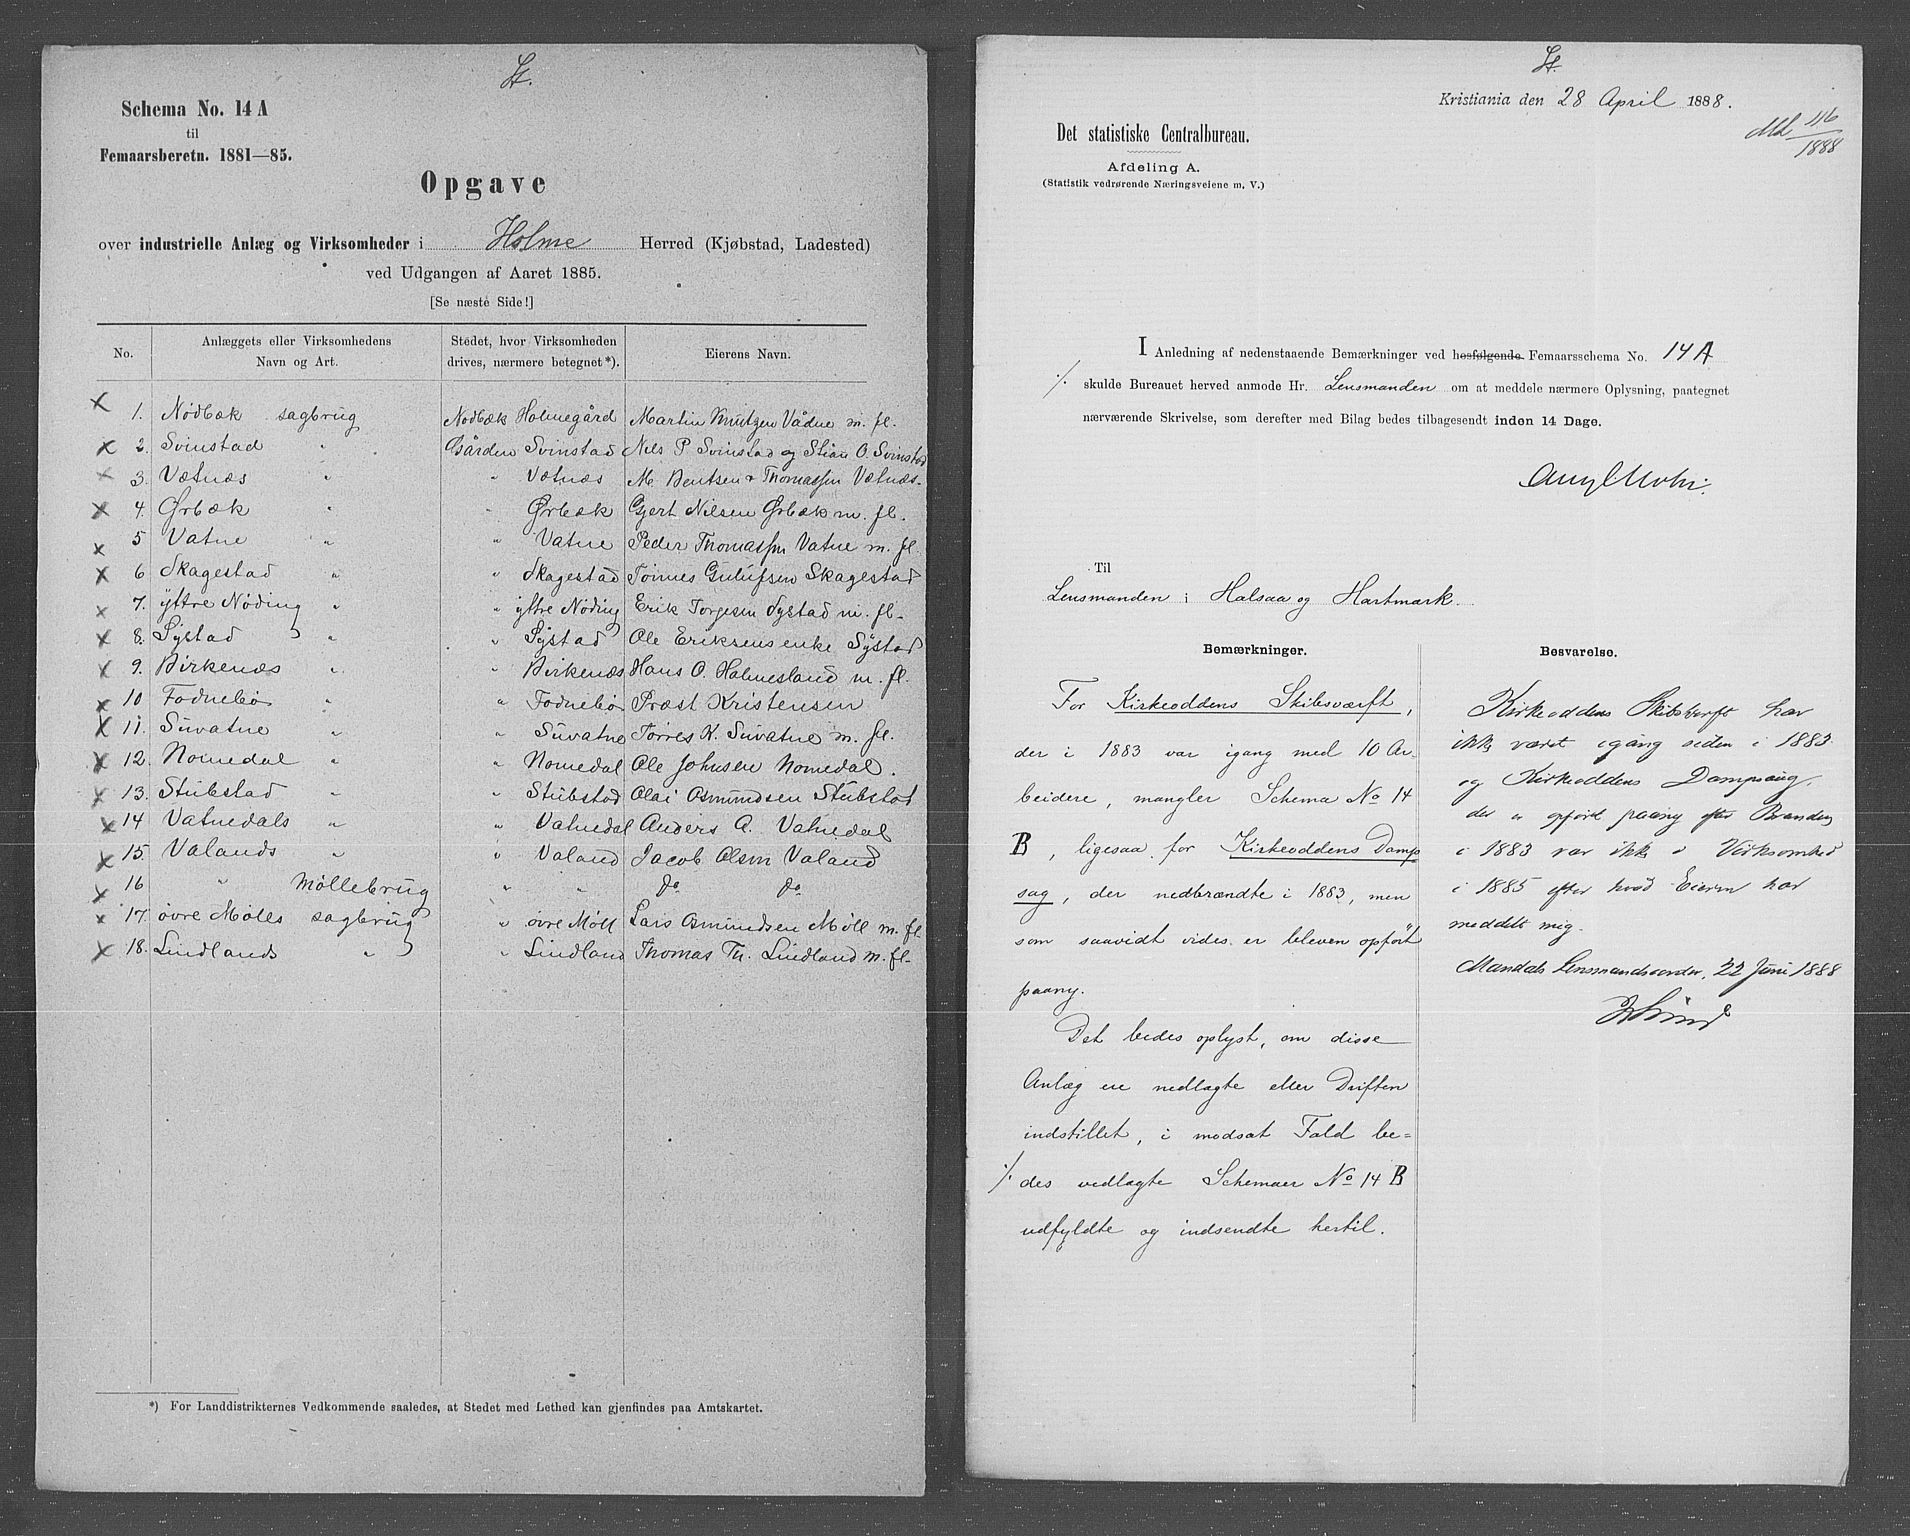 St.
Schema No. 14 A
til
Femaarsberetn. 1881—85.
Opgave
over industrielle Anlæg og Virksomheder i Holme Herred (Kjøbstad, Ladested)
ved Udgangen af Aaret 1885.
[Se næste Side!]
No. Anlæggets eller Virksomhedens Navn og Art. Stedet, hvor Virksomheden drives, nærmere betegnet*). Eierens Navn.
1. Nødbæk sagbrug Nødbæk Holmegård Martin Knutzen Vådne m. fl.
2. Svinstad " Gården Svinstad Nils P Svinstad og Stian O. Svinstad
3. Vætnæs " " Vætnæs M. Bentsen & Thomassen Vætnæs.
4. Ørbæk " " Ørbæk Gjert Nilsen Ørbæk m. fl.
5 Vatne " " Vatne Peder Thomassen Vatne m. fl.
6 Skagestad " " Skagestad Tönnes Gulufsen Skagestad
7. ÿttre Nöding " " ÿttre Nöding Erik Torgesen Systad m. fl.
8. Sÿstad " " Sÿstad Ole Eriksens enke Sÿstad
9. Birkenæs " " Birkenæs Hans O. Holmesland m. fl.
10 Fodnebö " " Fodnebö Præst Kristensen
11. Suvatne " " Suvatne Törres K. Suvatne m. fl.
12. Nomedal " " Nomedal Ole Johnsen Nomedal.
13. Stubstad " " Stubstad Olai Osmundsen Stubstad
14 Vatnedals " " Vatnedal Anders A. Vatnedal
15. Valands " " Valand Jacob Olsen Valand
16 " Møllebrug " " Do Do
17. övre Mölls sagbrug " övre Möll Lars Osmundsen Möll m. fl.
18. Lindlands " " Lindland Thomas Th. Lindland m. fl.
*) For Landdistrikternes Vedkommende saaledes, at Stedet med Lethed kan gjenfindes paa Amtskartet.
St.
Kristiania den 28 April 1888.
116
1888
Det statistiske Centralbureau.
Afdeling A.
(Statistik vedrørende Næringsveiene m. V.)
I Anledning af nedenstaaende Bemærkninger ved hosfølgende Femaarsschema No. 14 A
./. skulde Bureauet herved anmode Hr. Lensmanden om at meddele nærmere Oplysning, paategnet
nærværende Skrivelse, som derefter med Bilag bedes tilbagesendt inden 14 Dage.
Til
Lensmanden i Halsaa og Hartmark.
Bemærkninger.
For Kirkeoddens Skibsværft,
der i 1883 var igang med 10 Ar-
beidere, mangler Schema No 14
B, ligesaa for Kirkeoddens Damp
sag, der nedbrændte i 1883, men
som saavidt vides er bleven opført
paany.
Det bedes oplyst, om disse
Anlæg ere nedlagte eller Driften
indstillet, i modsat Fald be=
./. des vedlagte Schemaer No 14 B
udfyldte og indsendte hertil.
Besvarelse.
Kirkeoddens Skibsverft har
ikke været igang siden i 1883.
og Kirkeoddens Dampsaug,
der er opført paany efter Branden
i 1883 var ikke i Virksomhed
i 1885 efter hvad Eieren har
meddelt mig.
Mandals Lensmandsorden, 22 Juni 1888